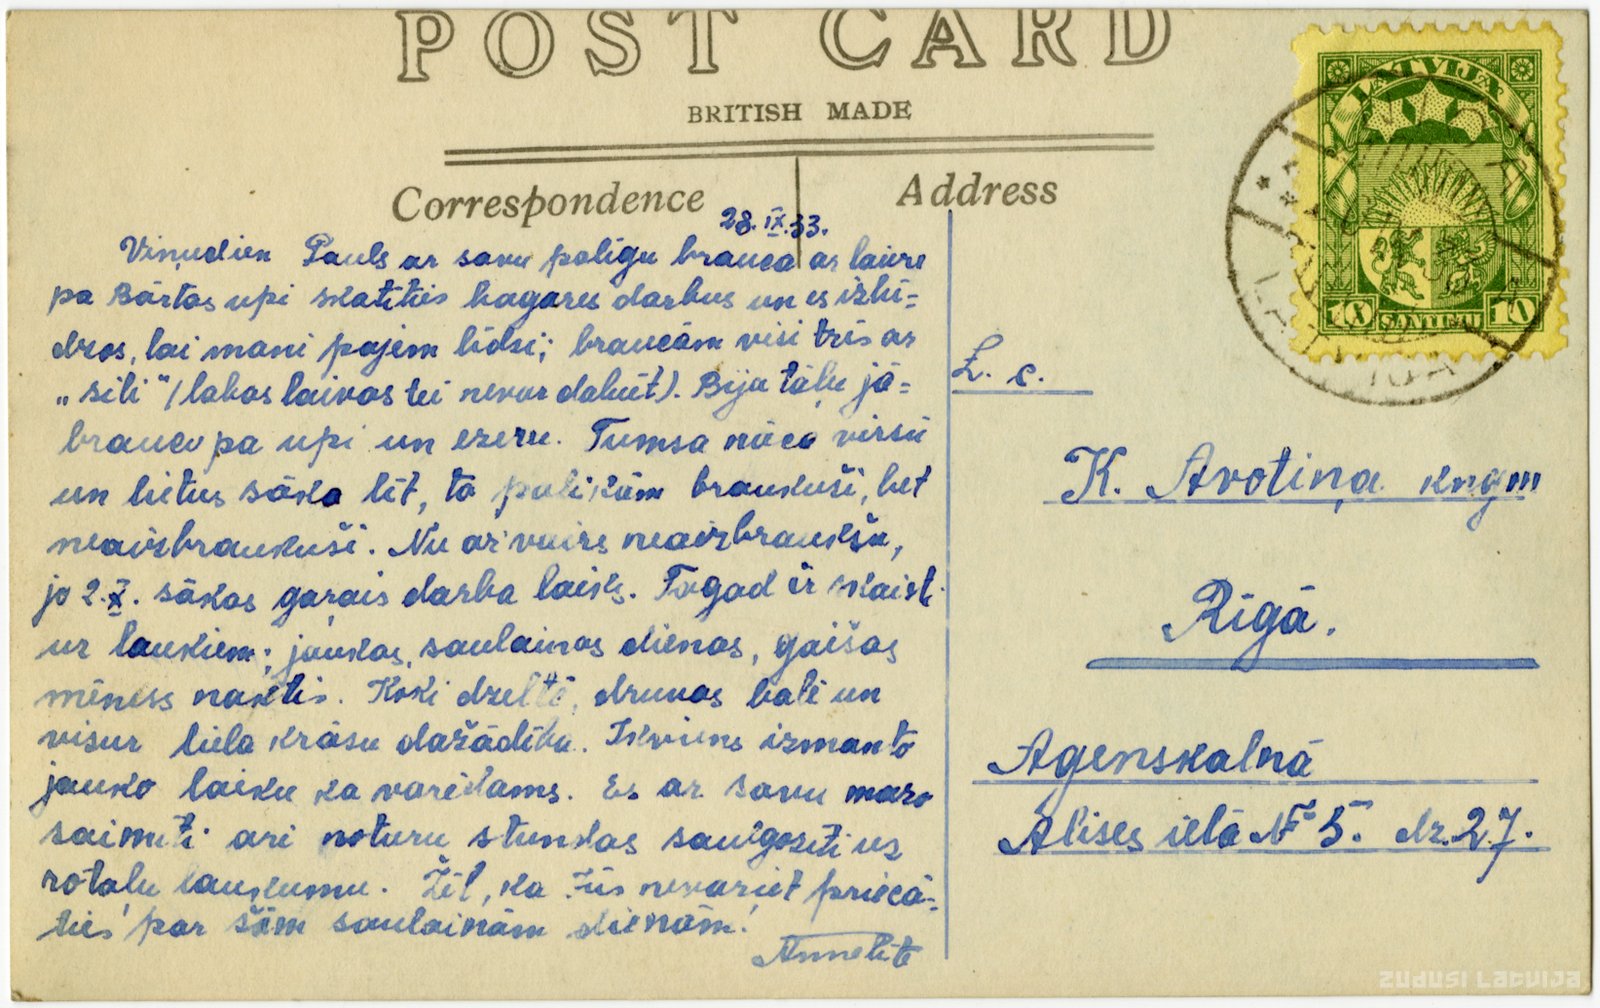 POST CARD
BRITISH MADE
Correspondence
Address
28.IX.33.
Viņudien Pauls ar savu palīgu brauca ar laivu
pa Bārtas upi skatīties bagares darbus un es izlū=
dzos, lai mani paņem līdzi; braucām visi trīs ar
„sili" (labas laivas tei nevar dabūt). Bija tāļu jā=
brauc pa upi un ezeru. Tumsa nāca virsū
un lietus sāka līt, tā palikām braukuši, bet
neaizbraukuši. Nu ar vairs neaizbraukšu,
jo 2.X. sākas gaŗais darba laiks. Tagad ir skaist
uz laukiem; jaukas, saulainas dienas, gaišas
mēness naktis. Koki dzeltē, druvas bāli un
visur liela krāsu dažādība. Ikviens izmanto
jauko laiku ka varēdams. Es ar savu mazo
saimīti arī noturu stundas saulgozīti uz
rotaļu laukumu. Žēl, ka Jūs nevariet priecā=
ties par šām saulainām dienām!
Annelīte
Ļ. c.
K. Avotiņa kngm
Rīgā.
Agenskalnā
Alises ielā № 5. dz.27.
LATVIJA
10 SANTIMU 10
LATVIJA
ZUDUSI LATVIJA